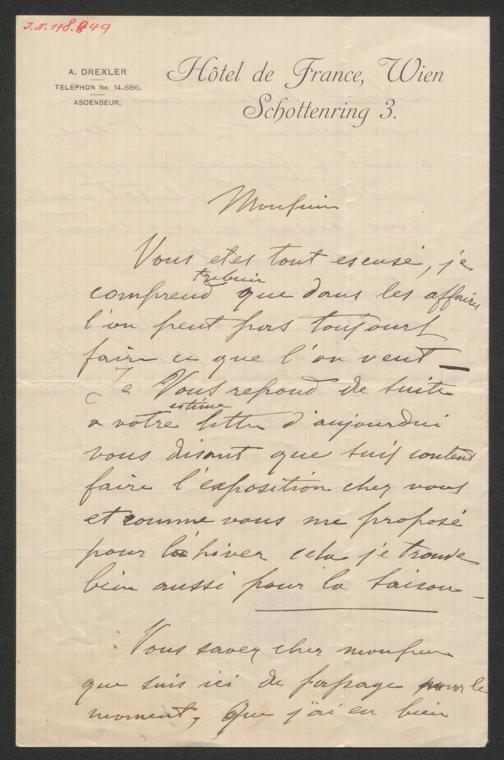 J.N. 118.849
A. DREXLER
TELEPHON No. 14.686.
ASCENSEUR.
Hôtel de France, Wien
Schottenring 3.
Monsieur
Vous etes tout escusé, je
comprend trebien que dans les affaires
l'on peut pas toujours
faire ce que l'on veut —
Je Vous repond de suite
a votre estime lettre d'aujourdui
vous disant que suis content
faire l'esposition chez vous
et comme vous me proposé
pour l'hiver cela je trouve
bien aussi pour la saison —
Vous savez cher monsieur
que suis ici de passage pour le
moment, Que j'ai eu bien